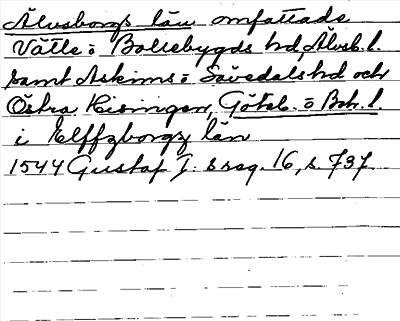 Älvsborgs län omfattade
Vätle o Bollebygds hd, Älvsb. l.
samt Askims o Sävedals hd och
Östra Hisingen, Göteb. o Boh. l.
i Elffzborgz län
1544 Gustaf I: s reg. 16, s. 737